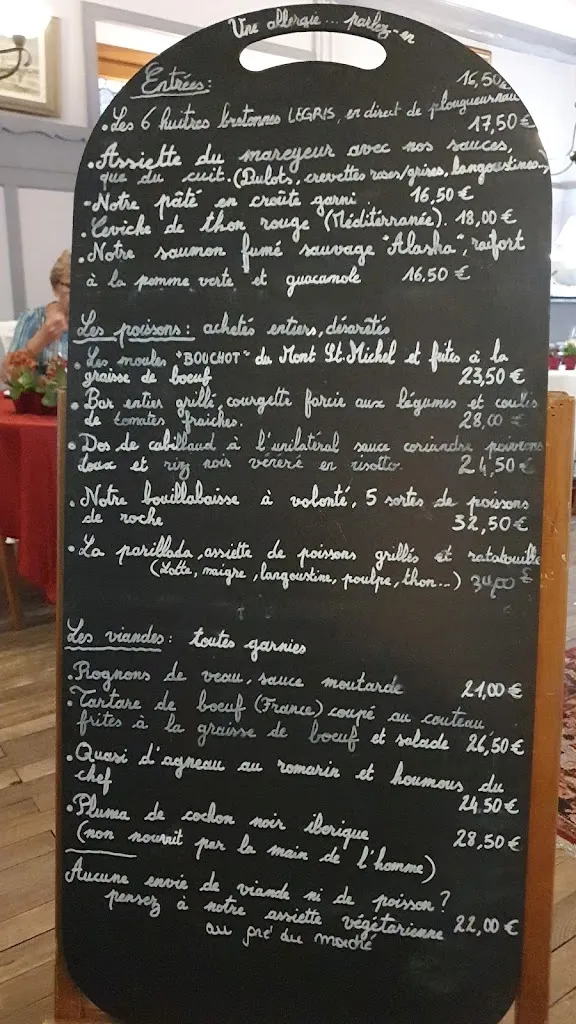 Une allergie... parlez-en
Entrées: 16,50
• Les 6 huitres bretonnes LEGRIS, en direct de plougueurneau
17,50€
• Assiette du mareyeur avec nos sauces,
que du cuit. (Bulots, crevettes roses/grises, langoustines...)
• Notre pâté en croûte garni 16,50€
• Ceviche de thon rouge (Méditérranée). 18,00€
• Notre saumon fumé sauvage "Alaska", raifort
à la pomme verte et guacamole 16,50€
Les poissons: achetés entiers, désarêtés
• Les moules "BOUCHOT" du Mont St. Michel et frites à la
graisse de boeuf 23,50€
• Bar entier grillé, courgette farcie aux légumes et coulis
de tomates fraiches. 28,00€
• Dos de cabillaud à l'unilatéral sauce coriandre, poivrons
doux et riz noir vénéré en risotto 24,50€
• Notre bouillabaisse à volonté, 5 sortes de poissons
de roche 32,50€
• La parillada, assiette de poissons grillés et ratatouille
(Lotte, maigre, langoustine, poulpe, thon...) 34,00€
Les viandes: toutes garnies
• Rognons de veau, sauce moutarde 21,00€
• Tartare de boeuf (France) coupé au couteau
frites à la graisse de boeuf et salade 26,50€
• Quasi d'agneau au romarin et houmous du
chef 24,50€
• Pluma de cochon noir iberique 28,50€
(non nourrit par la main de l'homme)
Aucune envie de viande ni de poisson?
pensez à notre assiette végétarienne 22,00€
au gré du marché